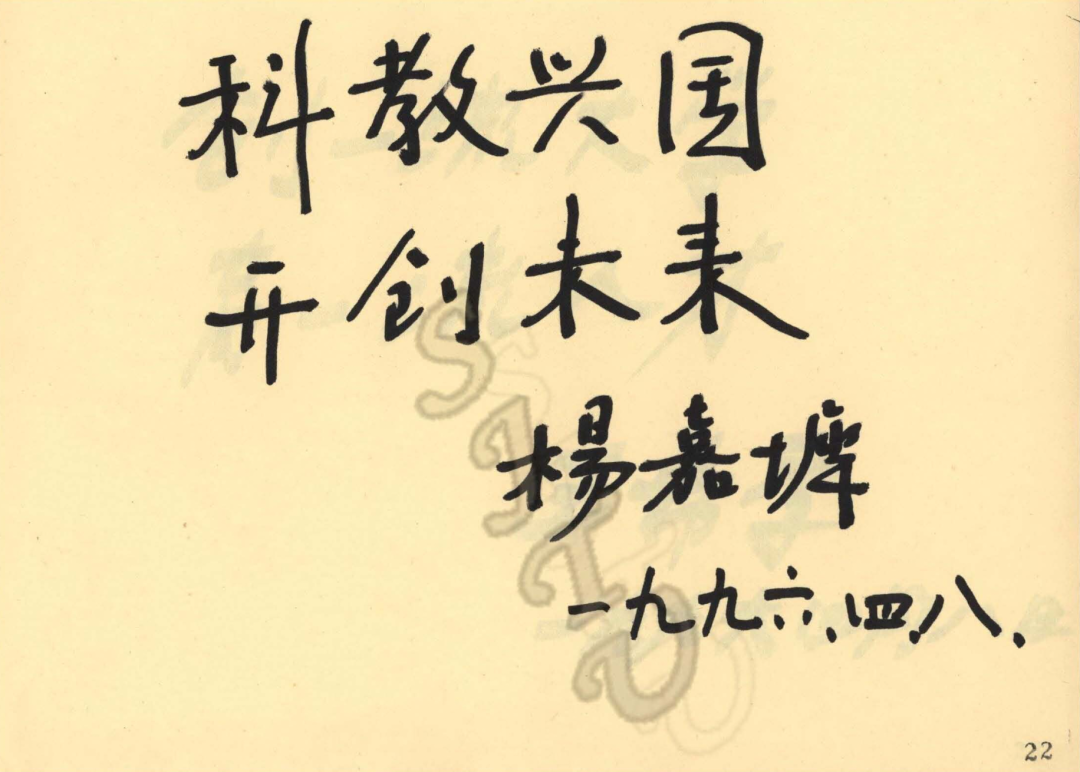 科教兴国
开创未来
杨嘉墀
一九九六.四.八.
SJTU
22